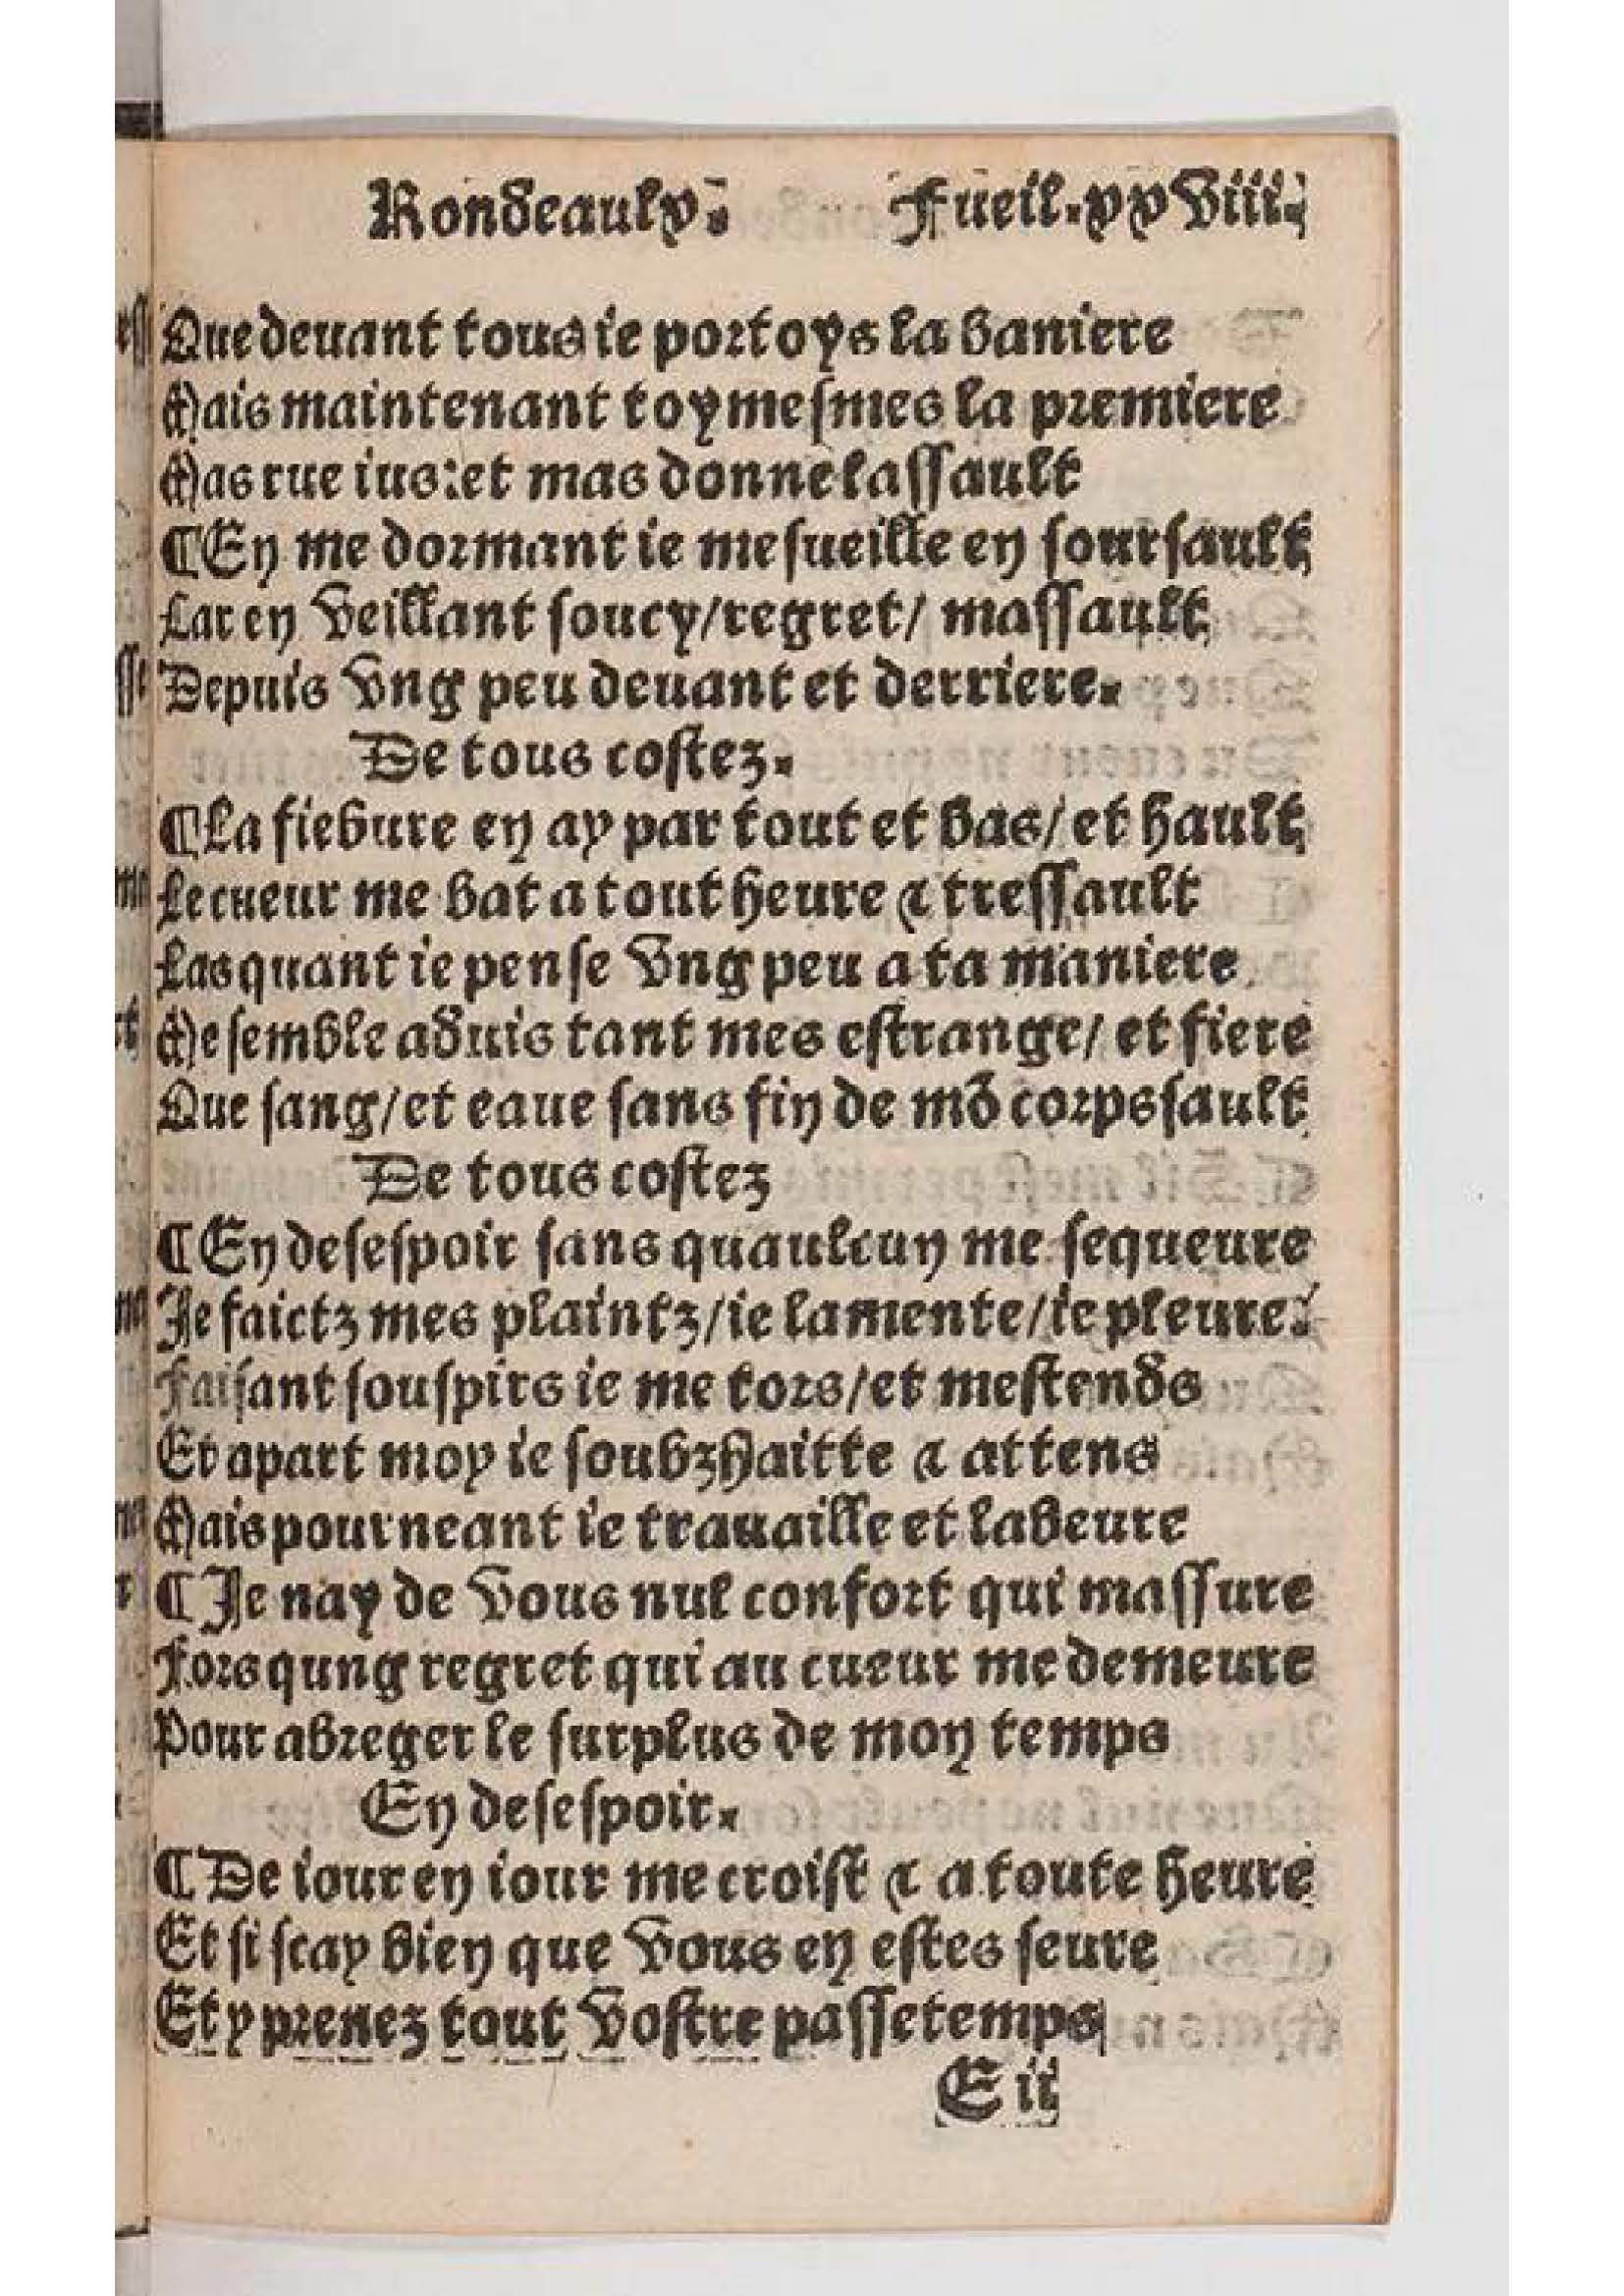 Rondeaulx. Fueil.xxviii.
Que deuant tous ie portoys la baniere
Mais maintenant toymesmes la premiere
Mas rue ius:et mas donne lassault
¶En me dormant ie mesueille en soursault
Car en veillant soucy/regret/ massault
Depuis vng peu deuant et derriere.
De tous costez.
¶La fiebure en ay par tout et bas/ et hault
Le cueur me bat a tout heure & tressault
Las quant ie pense vng peu a ta maniere
Me semble aduis tant mes estrange/ et fiere
Que sang/et eaue sans fin de mõ corps sault
De tous costez
¶En desespoir sans quaulcun me sequeure
Je faictz mes plaintz/ie lamente/ie pleure:
Faisant souspirs ie me tors/et mestends
Et apart moy ie soubzhaitte & attens
Mais pour neant ie trauaille et labeure
¶Je nay de vous nul confort qui massure
Fors qung regret qui au cueur me demeure
Pour abreger le surplus de mon temps
En desespoir.
¶De iour en iour me croist & a toute heure
Et si scay bien que vous en estes seure
Et y prenez tout vostre passetemps
E ii